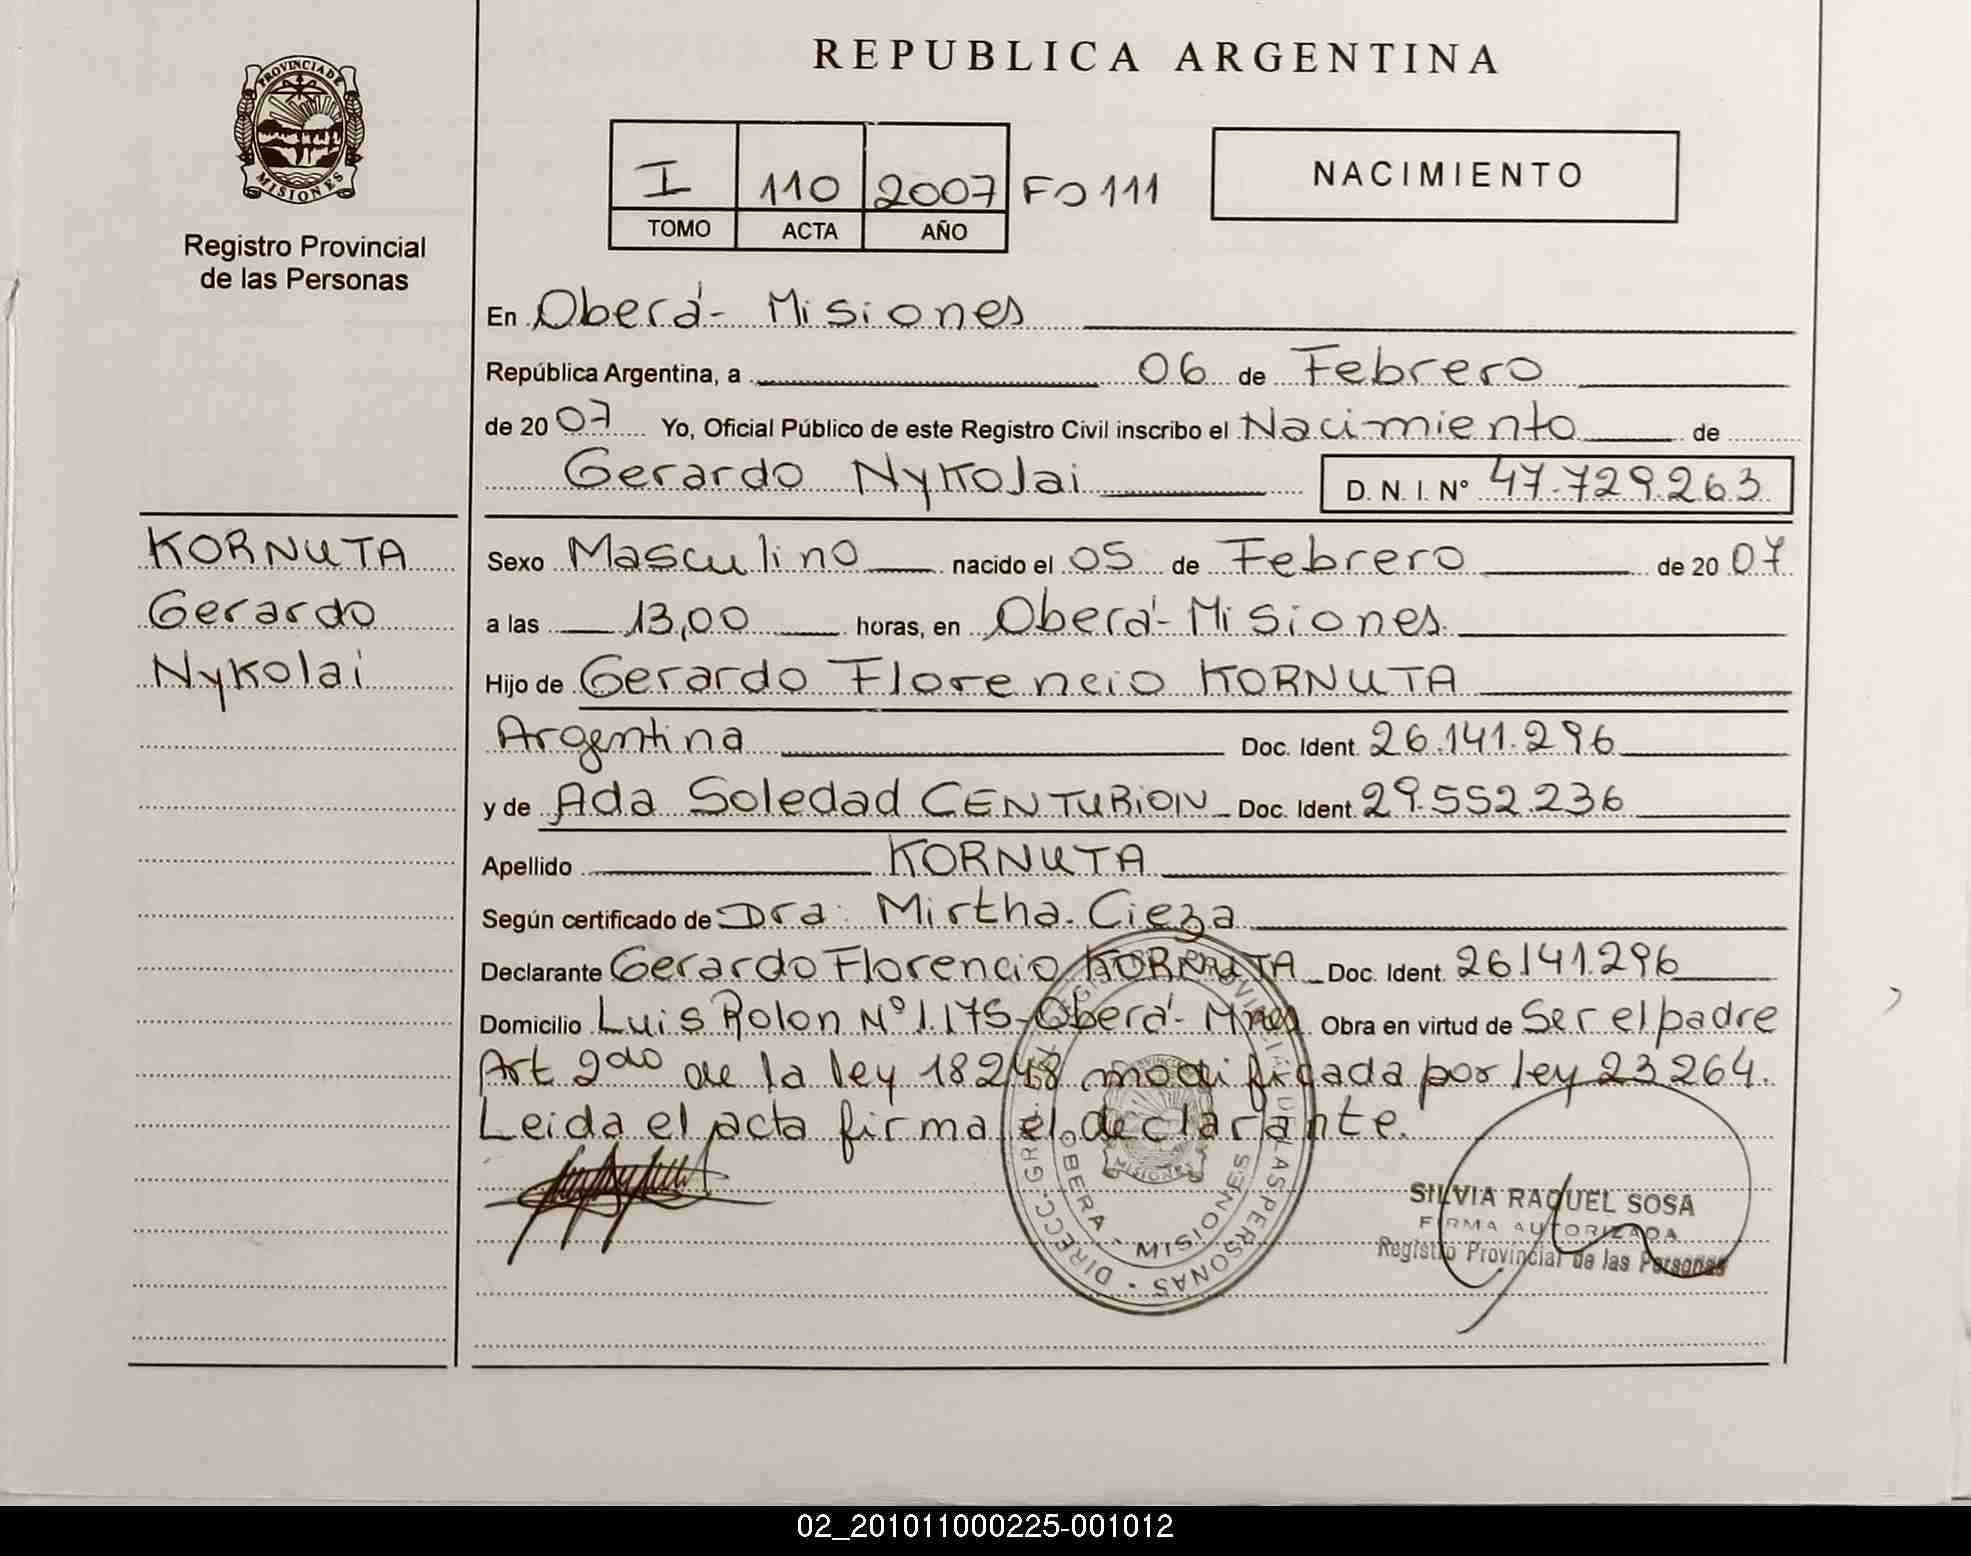 REPUBLICA ARGENTINA
PROVINCIA DE
MISIONES
Registro Provincial
de las Personas
I 110 2007 Fo 111
TOMO ACTA AÑO
NACIMIENTO
En Oberá- Misiones
República Argentina, a 06 de Febrero
de 20 07 Yo, Oficial Público de este Registro Civil inscribo el Nacimiento de
Gerardo Nykolai D. N. I. N° 47.729.263
KORNUTA
Gerardo
Nykolai
Sexo Masculino nacido el 05 de Febrero de 20 07
a las 13,00 horas, en Oberá-Misiones.
Hijo de Gerardo Florencio KORNUTA
Argentina Doc. Ident. 26.141.296
y de Ada Soledad CENTURION Doc. Ident. 29.552.236
Apellido KORNUTA
Según certificado de Dra: Mirtha. Cieza
Declarante Gerardo Florencio KORNUTA Doc. Ident. 26.141.296
Domicilio Luis Rolon N° 1.175-Oberá- Mnes Obra en virtud de Ser el padre
Art 2do de la ley 18248 modificada por ley 23.264.
Leida el acta firma el declarante.
DIRECC. GRAL. DEL REGISTRO PROVINCIAL DE LAS PERSONAS
OBERA - MISIONES
MISIONES
SILVIA RAQUEL SOSA
FIRMA AUTORIZADA
Registro Provincial de las Personas
02_201011000225-001012